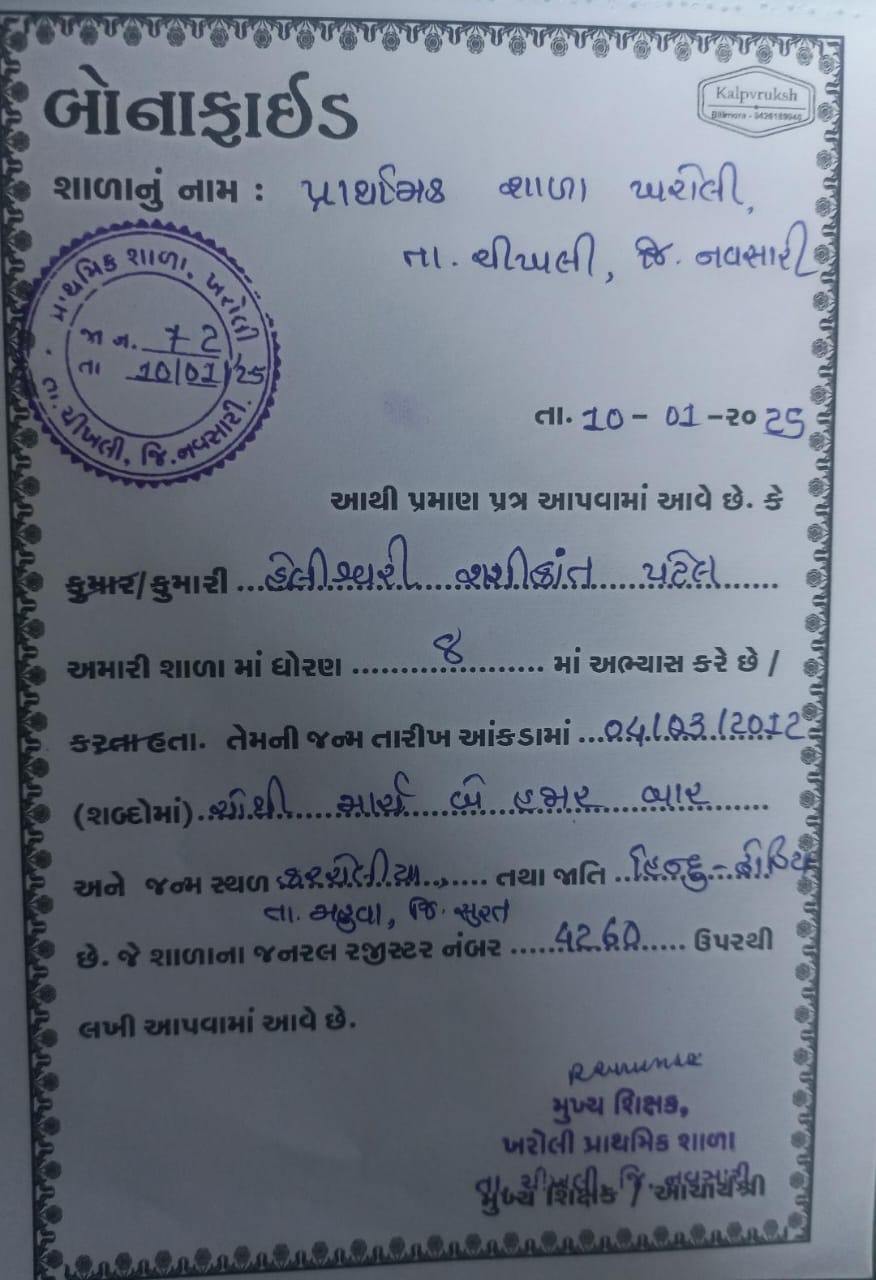 બોનાફાઈડ
Kalpvruksh
Bilimora -
શાળાનું નામ : પ્રાથમિક શાળા ખરોલી,
તા. ચીખલી, જિ. નવસારી
પ્રાથમિક શાળા, ખરોલી
જા નં. 72
તા 10/01/25
તા. ચીખલી, જિ. નવસારી.
તા. 10 - 01 -૨૦ 25
આથી પ્રમાણ પત્ર આપવામાં આવે છે. કે
કુમાર/કુમારી ... શશીકાંત પટેલ
અમારી શાળા માં ધોરણ ... ૪ ... માં અભ્યાસ કરે છે /
કરતા હતા. તેમની જન્મ તારીખ આંકડામાં ...04/03/2012
(શબ્દોમાં) ચોથી માર્ચ બે હજાર બાર
અને જન્મ સ્થળ ... તથા જાતિ ..હિન્દુ -
તા. મહુવા, જિ. સુરત
છે. જે શાળાના જનરલ રજીસ્ટર નંબર ......4260...... ઉપરથી
લખી આપવામાં આવે છે.
મુખ્ય શિક્ષક,
ખરોલી પ્રાથમિક શાળા
તા. ચીખલી જિ. નવસારી
મુખ્ય શિક્ષક / આચાર્યશ્રી